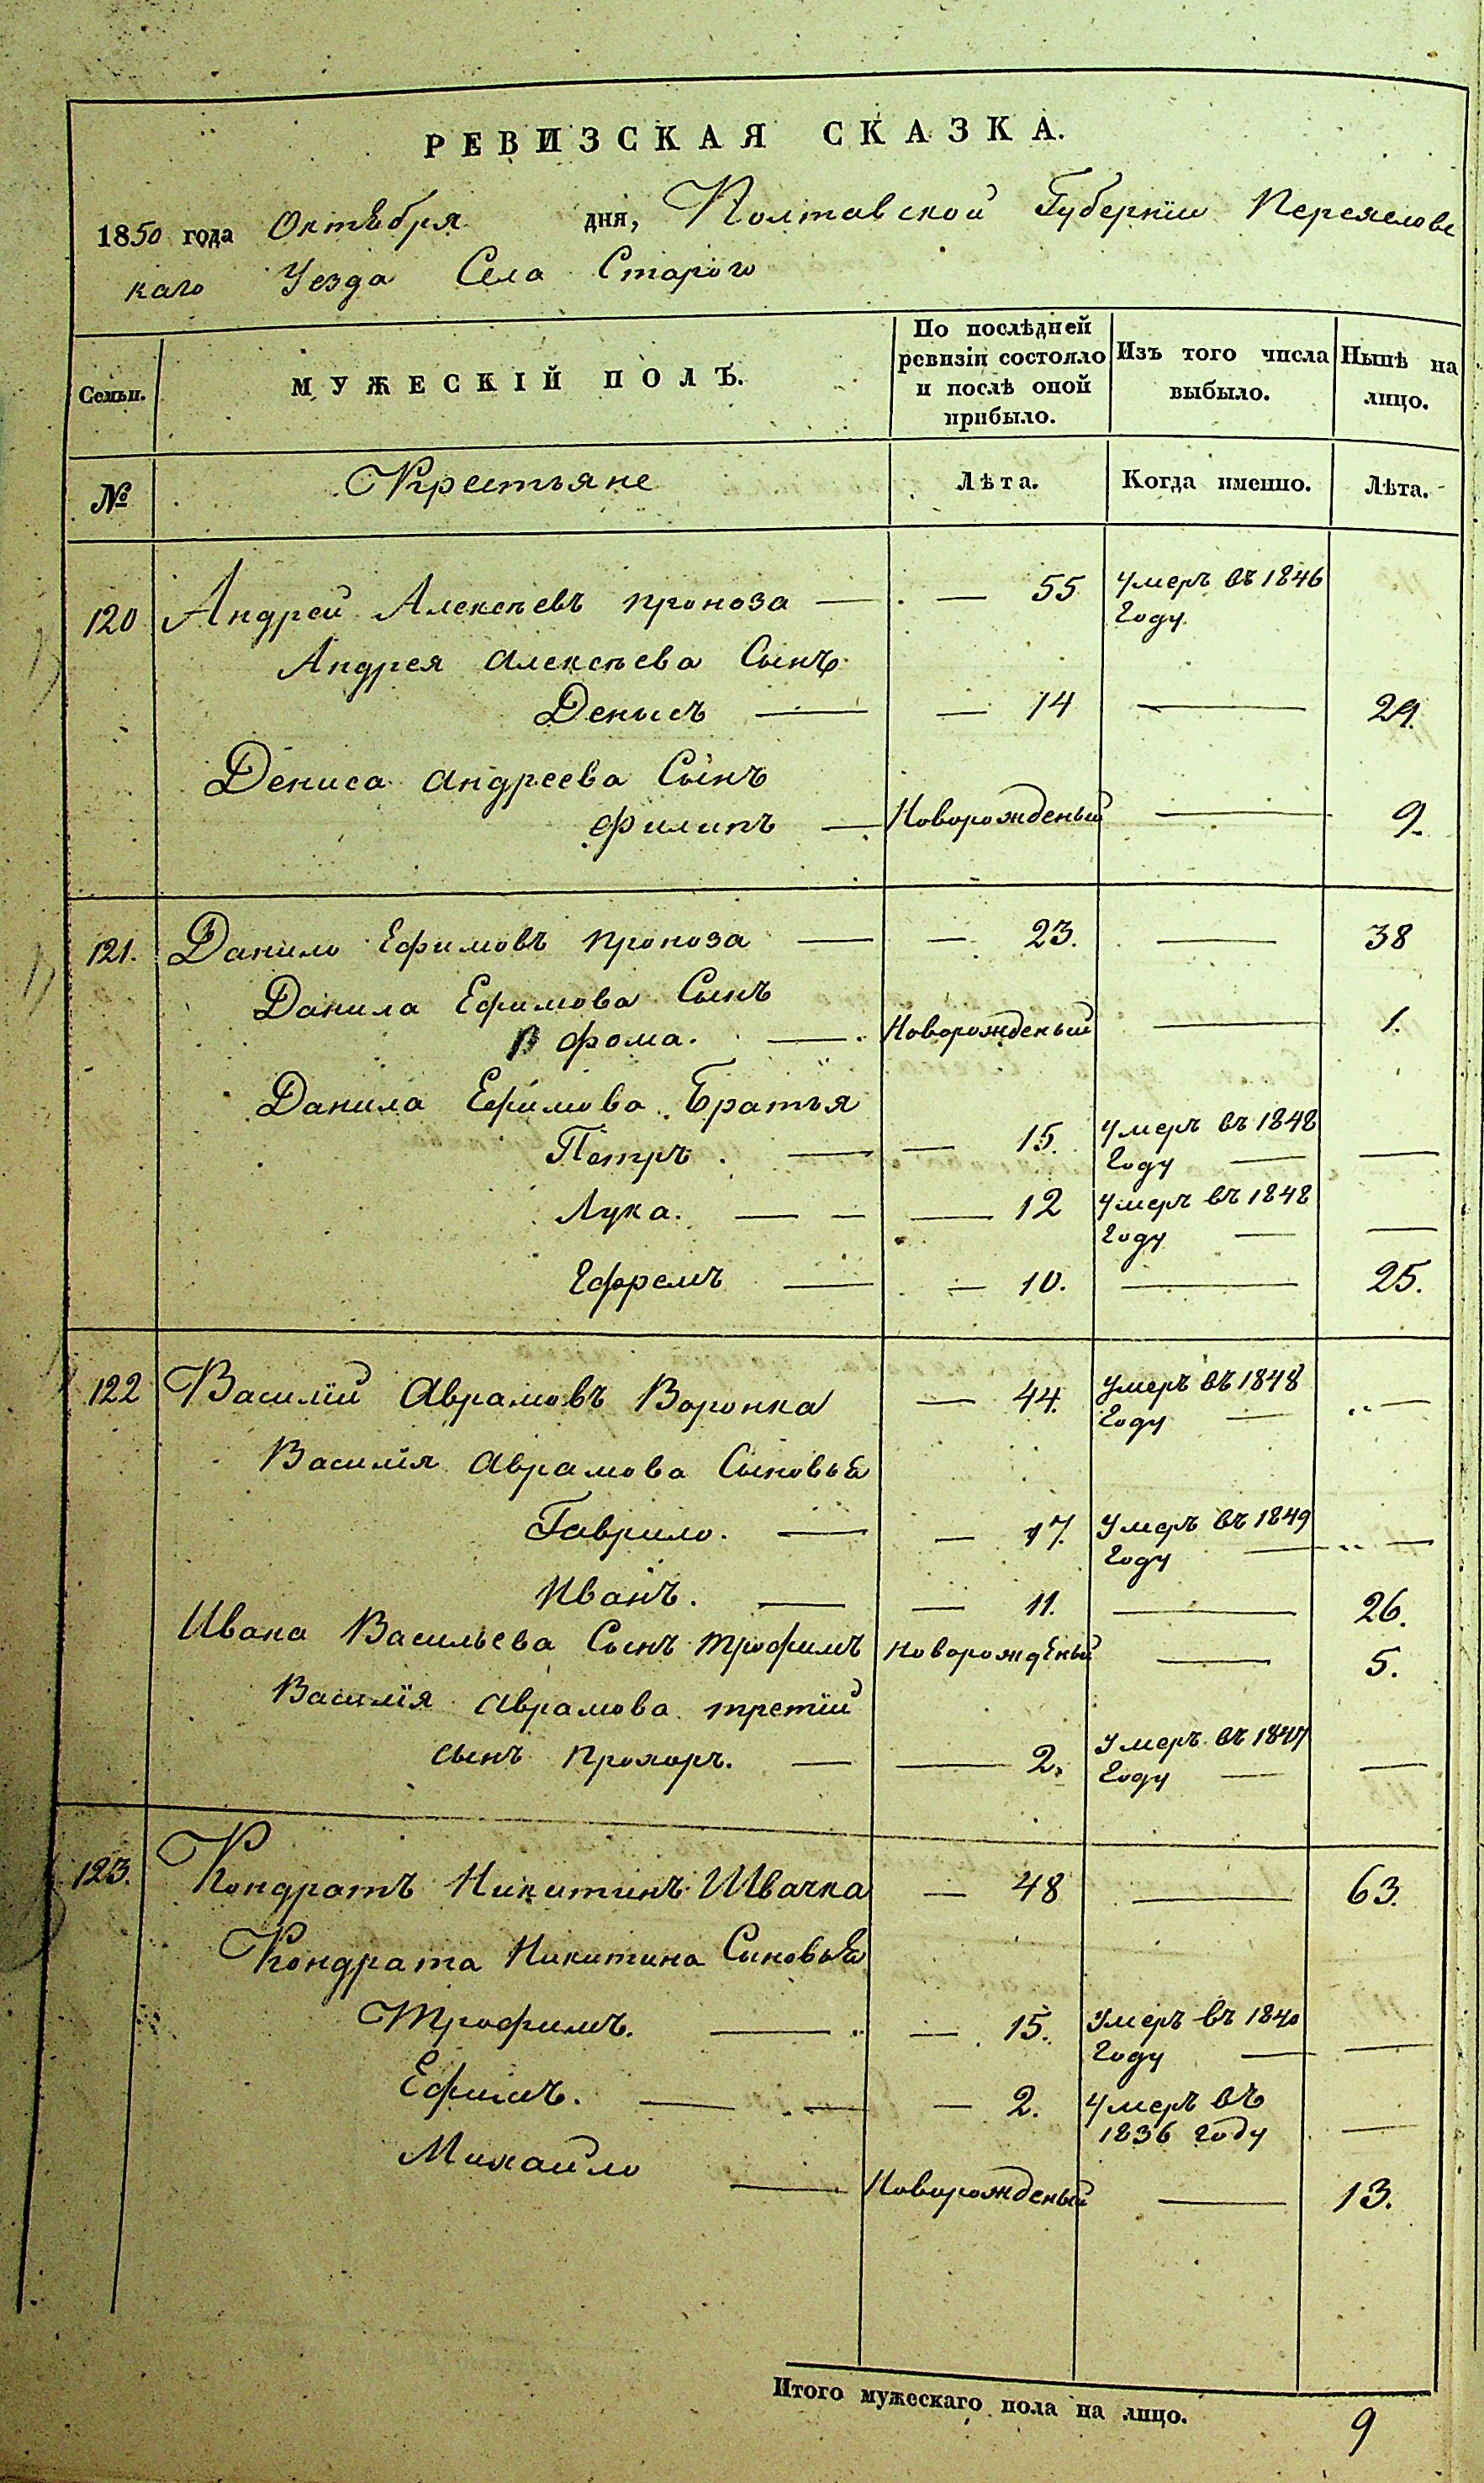 РЕВИЗСКАЯ СКАЗКА.
1850 года Октября дня, Полтавской Губернïи Переяслове
каго Уезда Села Старого
Семьи.
МУЖЕСКІЙ ПОЛЪ.
По послѣдней
ревизіи состояло
и послѣ оной
прибыло.
Изъ того числа
выбыло.
Нынѣ на
лицо.
№
Крестьяне
Лѣта.
Когда именно.
Лѣта.
120 Андрей Алексѣевъ проноза — — 55 умеръ въ 1846
году.
Андрея Алексѣева Сынъ
Денысъ — — 14 — 29.
Дениса Андреева Сынъ
Филипъ — Новорожденый — 9.
121. Данило Ефимовъ проноза — — 23. — 38
Данила Ефимова Сынъ
Фома. — Новорожденый — 1.
Данила Ефимова Братья
Петръ. — — 15. умеръ въ 1848
году — —
Лука. — — — 12 умеръ въ 1848
году — —
Ефремъ — — 10. — 25.
122 Василïй Аврамовъ Воронка — 44. умеръ въ 1848
году — —
Василïя Аврамова Сыновья
Гаврило. — — 17. умеръ въ 1849
году — —
Иванъ. — — 11. — 26.
Ивана Васильева Сынъ трофимъ Новорожденый — 5.
Василïя Аврамова третïй
сынъ прохоръ. — — 2. умеръ въ 1847
году — —
123. Кондратъ Никитинъ Швачка — 48 — 63.
Кондрата Никитина Сыновья
Трофимъ. — — 15. умеръ въ 1840
году — —
Ефимъ. — — — 2. умеръ въ
1836 году —
Михайло — Новорожденый — 13.
Итого мужескаго пола на лицо. 9